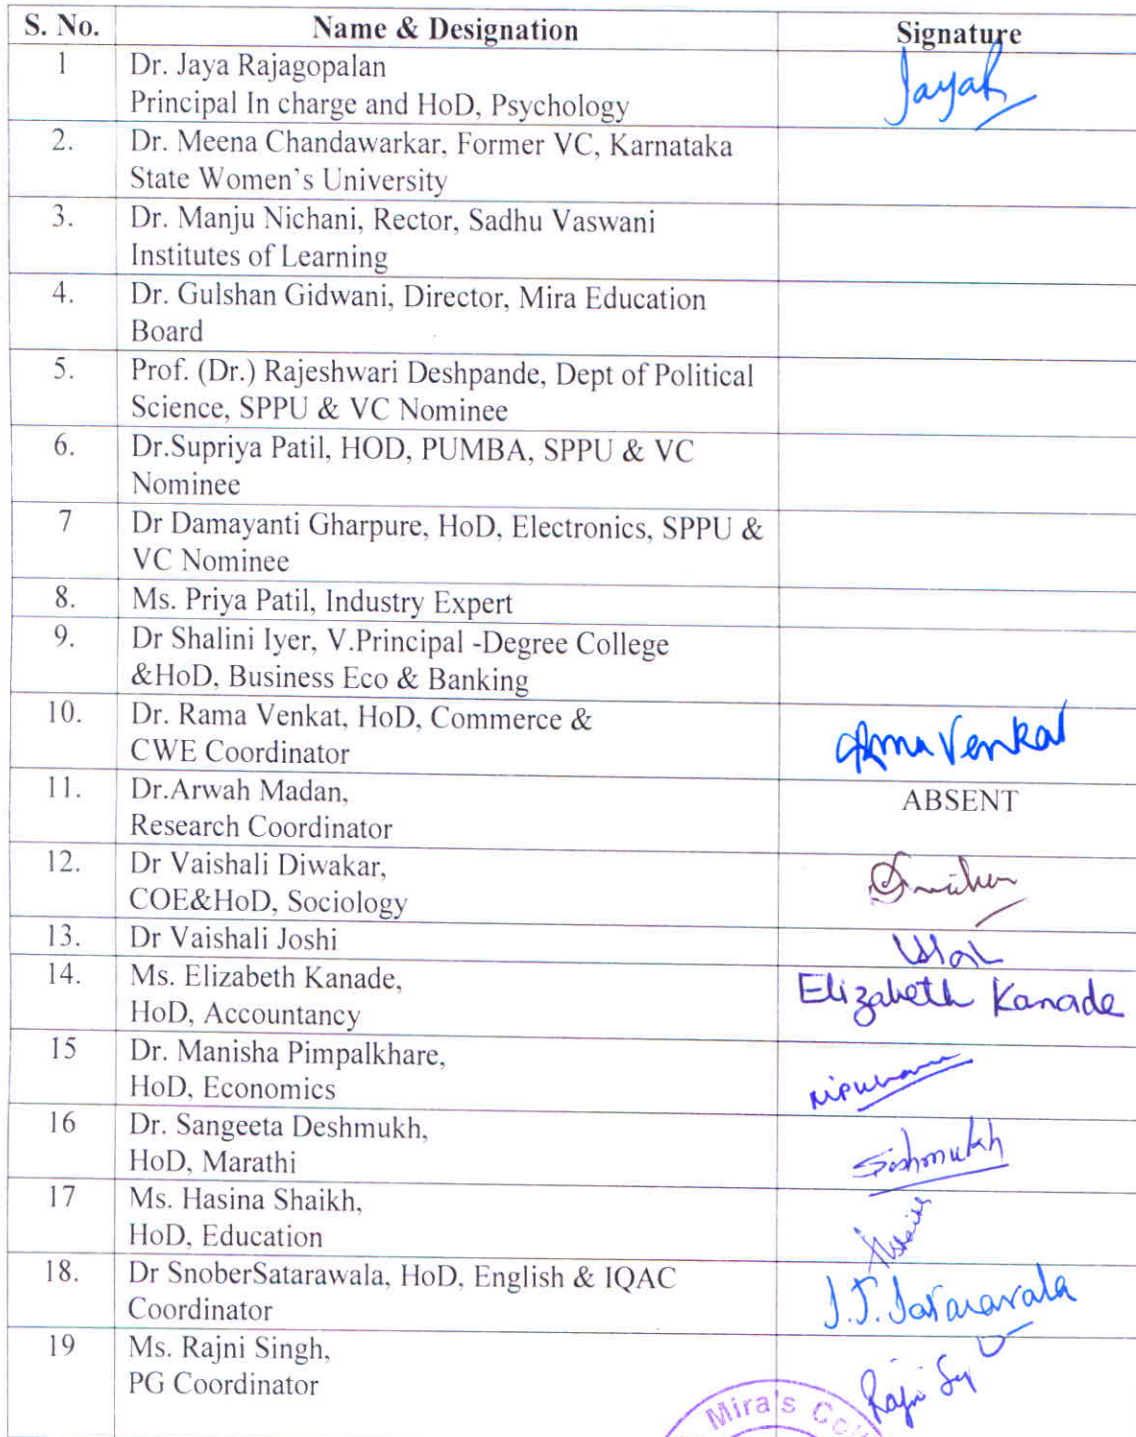 S. No. Name & Designation Signature
1 Dr. Jaya Rajagopalan
Principal In charge and HoD, Psychology
JayaR
2. Dr. Meena Chandawarkar, Former VC, Karnataka
State Women's University
3. Dr. Manju Nichani, Rector, Sadhu Vaswani
Institutes of Learning
4. Dr. Gulshan Gidwani, Director, Mira Education
Board
5. Prof. (Dr.) Rajeshwari Deshpande, Dept of Political
Science, SPPU & VC Nominee
6. Dr.Supriya Patil, HOD, PUMBA, SPPU & VC
Nominee
7 Dr Damayanti Gharpure, HoD, Electronics, SPPU &
VC Nominee
8. Ms. Priya Patil, Industry Expert
9. Dr Shalini Iyer, V.Principal -Degree College
&HoD, Business Eco & Banking
10. Dr. Rama Venkat, HoD, Commerce &
CWE Coordinator
Venkat
11. Dr.Arwah Madan,
Research Coordinator
ABSENT
12. Dr Vaishali Diwakar,
COE&HoD, Sociology
13. Dr Vaishali Joshi
14. Ms. Elizabeth Kanade,
HoD, Accountancy
Elizabeth Kanade
15 Dr. Manisha Pimpalkhare,
HoD, Economics
16 Dr. Sangeeta Deshmukh,
HoD, Marathi
17 Ms. Hasina Shaikh,
HoD, Education
18. Dr SnoberSatarawala, HoD, English & IQAC
Coordinator
Satarawala
19 Ms. Rajni Singh,
PG Coordinator
Mira's